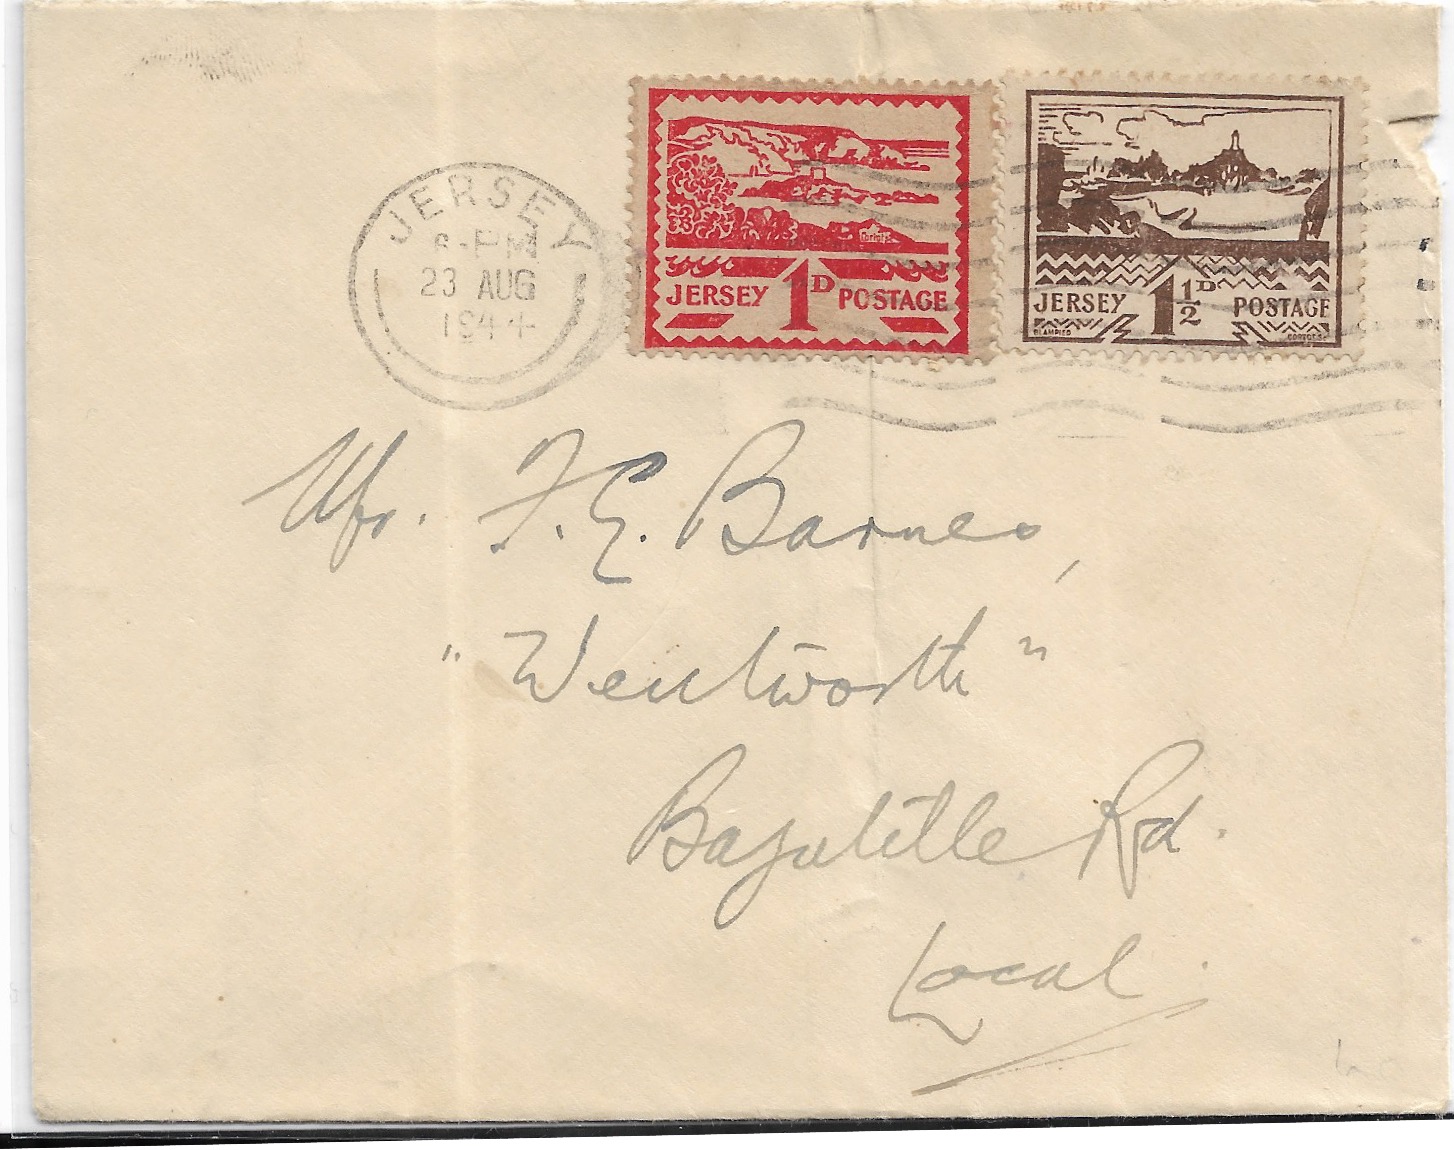 JERSEY
-PM
23 AUG
1944
JERSEY 1D POSTAGE
JERSEY 1½D POSTAGE
BLAMPIED
Mr. F. E. Barnes,
"Wentworth"
Bagatelle Rd.
Local.